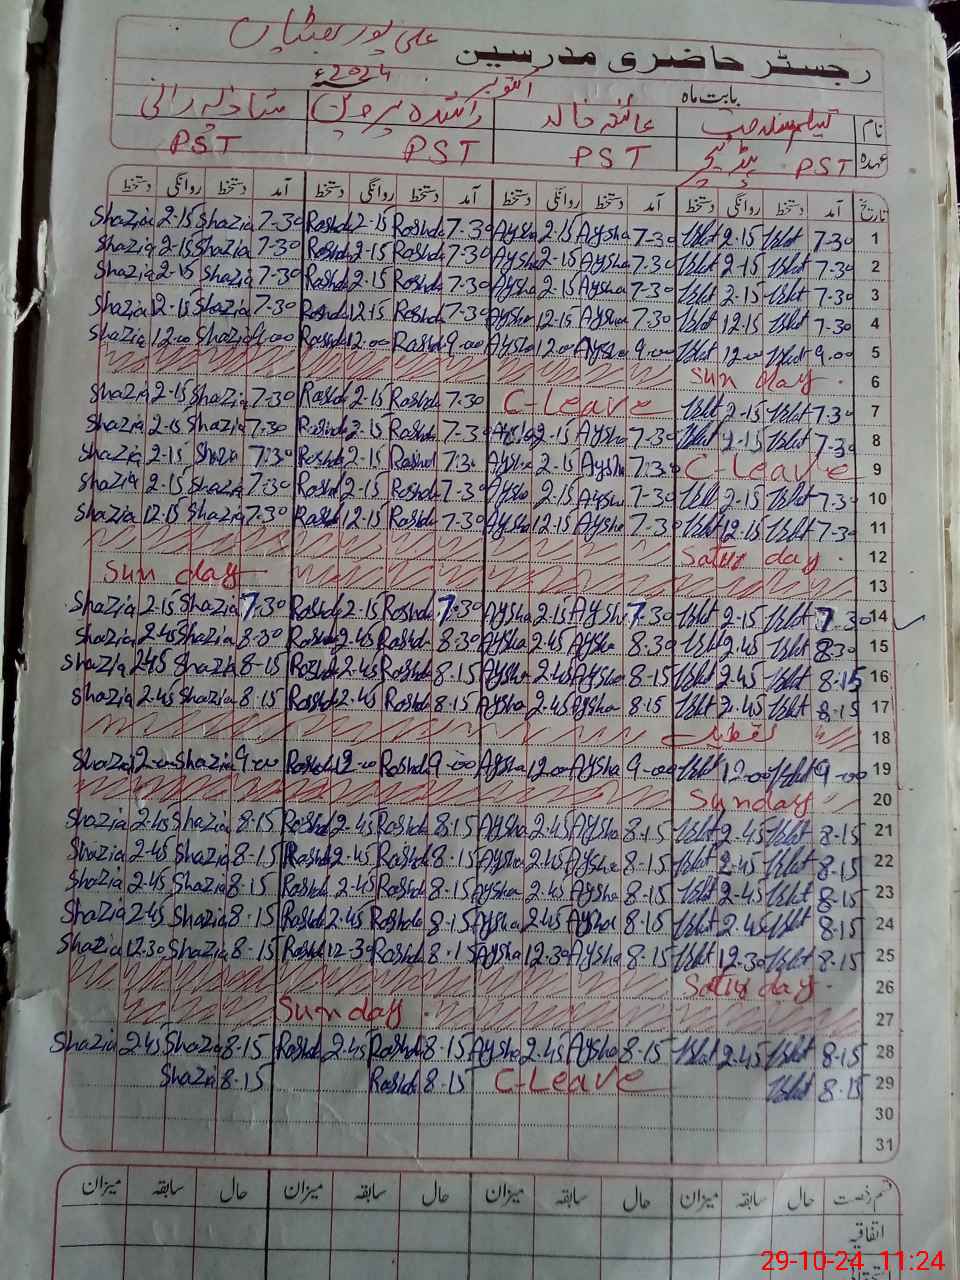 علی پور بھٹیاں
رجسٹر حاضری مدرسین
بابت ماہ اکتوبر 2024ء
نام عائشہ خالد راشدہ پروین شازیہ رانی
عہدہ PST ہیڈ ٹیچر PST PST PST
تاریخ آمد دستخط روانگی دستخط آمد دستخط روانگی دستخط آمد دستخط روانگی دستخط آمد دستخط روانگی دستخط
Shazia 2-15 Shazia 7-30 Rashda 2-15 Rashda 7-30 Aysha 2-15 Aysha 7-30 2-15 7-30 1
Shazia 2-15 Shazia 7-30 Rashda 2-15 Rashda 7-30 Aysha 2-15 Aysha 7-30 2-15 7-30 2
Shazia 2-15 Shazia 7-30 Rashda 2-15 Rashda 7-30 Aysha 2-15 Aysha 7-30 2-15 7-30 3
Shazia 12-15 Shazia 7-30 Rashda 12-15 Rashda 7-30 Aysha 12-15 Aysha 7-30 12-15 7-30 4
Shazia 12-00 Shazia 9-00 Rashda 12-00 Rashda 9-00 Aysha 12-00 Aysha 9-00 12-00 9-00 5
Sun day 6
Shazia 2-15 Shazia 7-30 Rashda 2-15 Rashda 7-30 C-Leave 2-15 7-30 7
Shazia 2-15 Shazia 7-30 Rashda 2-15 Rashda 7-30 Aysha 2-15 Aysha 7-30 2-15 7-30 8
Shazia 2-15 Shazia 7:30 Rashda 2-15 Rashda 7:30 Aysha 2-15 Aysha 7:30 C-Leave 9
Shazia 2-15 Shazia 7-30 Rashda 2-15 Rashda 7-30 Aysha 2-15 Aysha 7-30 2-15 7-30 10
Shazia 12-15 Shazia 7-30 Rashda 12-15 Rashda 7-30 Aysha 12-15 Aysha 7-30 12-15 7-30 11
Satur day 12
Sun day 13
Shazia 2-15 Shazia 7-30 Rashda 2-15 Rashda 7-30 Aysha 2-15 Aysha 7-30 2-15 7-30 14
Shazia 2-45 Shazia 8-30 Rashda 2-45 Rashda 8-30 Aysha 2-45 Aysha 8-30 2-45 8-30 15
Shazia 2-45 Shazia 8-15 Rashda 2-45 Rashda 8-15 Aysha 2-45 Aysha 8-15 2-45 8-15 16
Shazia 2-45 Shazia 8-15 Rashda 2-45 Rashda 8-15 Aysha 2-45 Aysha 8-15 2-45 8-15 17
18
Shazia 12-00 Shazia 9-00 Rashda 12-00 Rashda 9-00 Aysha 12-00 Aysha 9-00 12-00 9-00 19
Sunday 20
Shazia 2-45 Shazia 8-15 Rashda 2-45 Rashda 8-15 Aysha 2-45 Aysha 8-15 2-45 8-15 21
Shazia 2-45 Shazia 8-15 Rashda 2-45 Rashda 8-15 Aysha 2-45 Aysha 8-15 2-45 8-15 22
Shazia 2-45 Shazia 8-15 Rashda 2-45 Rashda 8-15 Aysha 2-45 Aysha 8-15 2-45 8-15 23
Shazia 2-45 Shazia 8-15 Rashda 2-45 Rashda 8-15 Aysha 2-45 Aysha 8-15 2-45 8-15 24
Shazia 12-30 Shazia 8-15 Rashda 12-30 Rashda 8-15 Aysha 12-30 Aysha 8-15 12-30 8-15 25
Satur day 26
Sunday 27
Shazia 2-45 Shazia 8-15 Rashda 2-45 Rashda 8-15 Aysha 2-45 Aysha 8-15 2-45 8-15 28
Shazia 8-15 Rashda 8-15 C-Leave 8-15 29
30
31
قسم رخصت حال سابقہ میزان حال سابقہ میزان حال سابقہ میزان حال سابقہ میزان
اتفاقیہ
29-10-24 11:24